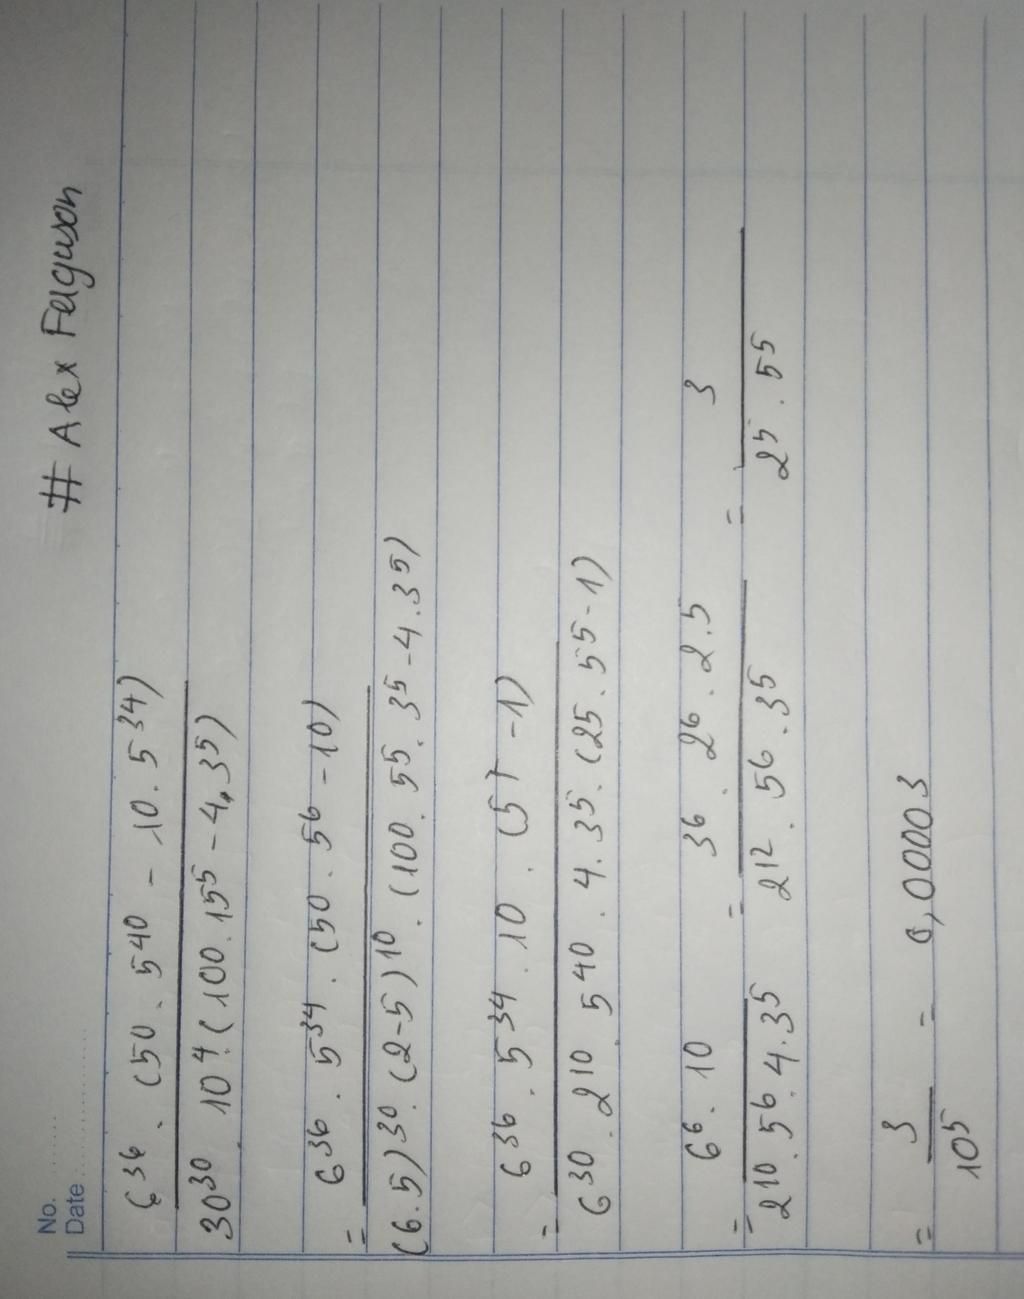 No. ........
Date ....................
# Alex Ferguson
6^36 . (50 . 5^40 - 10 . 5^34)
30^30 . 10^4 . (100 . 15^5 - 4 . 3^5)
= 6^36 . 5^34 . (50 . 5^6 - 10)
(6.5)^30 . (2-5)^10 . (100 . 5^5 . 3^5 - 4 . 3^5)
= 6^36 . 5^34 . 10 . (5^7 - 1)
6^30 . 2^10 . 5^40 . 4 . 3^5 . (25 . 5^5 - 1)
= 6^6 . 10 = 3^6 . 2^6 . 2 . 5 = 3
2^10 . 5^6 . 4 . 3^5 2^12 . 5^6 . 3^5 2^5 . 5^5
= 3 = 0,00003
10^5